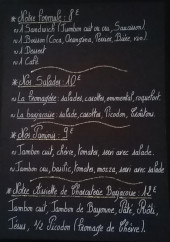 * Notre Formule : 8€
~ 1 Sandwich (Jambon cuit ou cru, Saucisson)
~ 1 Boisson (Coca, Orangina, Perrier, Bière, vin)
~ 1 Dessert
~ 1 Café
* Nos Salades : 10€
~ La Fromagère : salades, carottes, emmental, roquefort.
~ La : salade, carottes, Picodon,
* Nos Paninis : 9€
~ Jambon cuit, chèvre, tomates, servi avec salade.
~ Jambon cru, basilic, tomates, mozza, servi avec salade
* Notre Assiette de Charcuterie : 12€
Jambon cuit, Jambon de Bayonne, Pâté,
1/2 Picodon (fromage de chèvre).